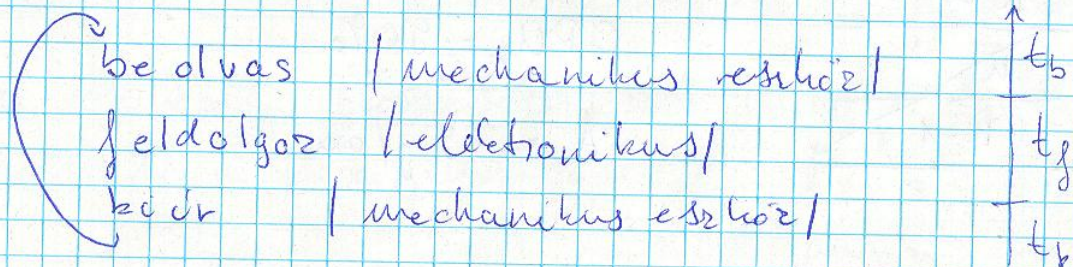 be olvas /mechanikus eszköz/ t_b
feldolgoz /elektronikus/ t_f
kiír /mechanikus eszköz/ t_k